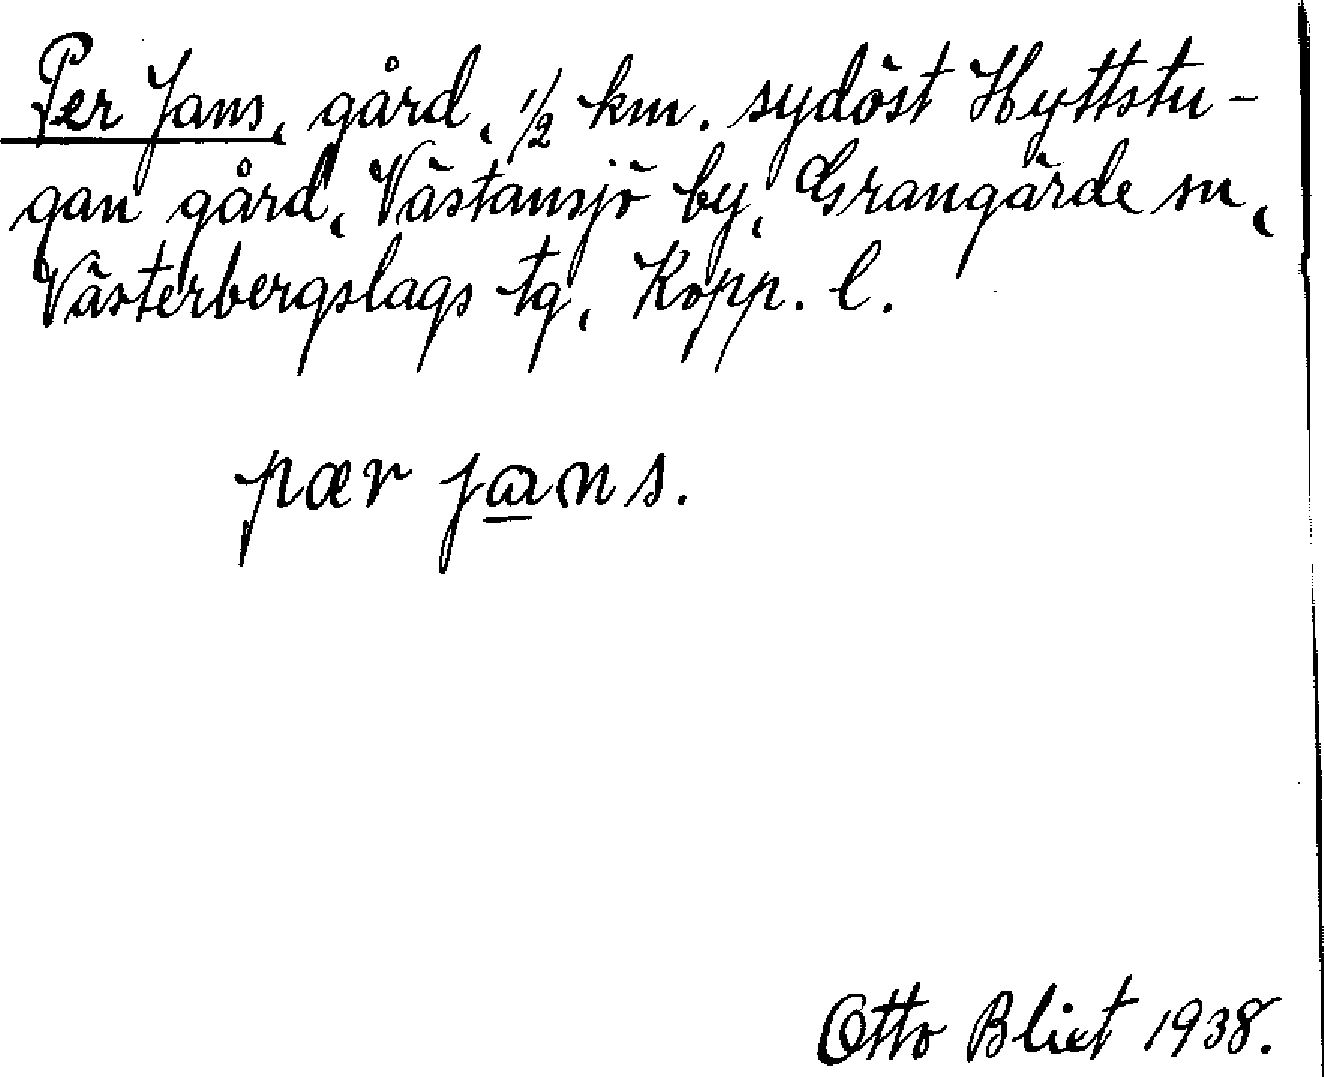 Per Jans, gård, 1/2 km. sydöst Hyttstu-
gan gård, Västansjö by, Grangärde sn,
Västerbergslags tg, Kopp. l.
pær jans.
Otto Blixt 1938.